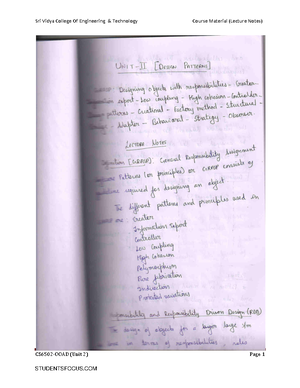 Sri Vidya College Of Engineering & Technology Course Material (Lecture Notes)
UNIT-II [DESIGN PATTERNS]
GRASP: Designing objects with responsibilities - Creator -
Information expert - Low coupling - High cohesion - Controller -
Design patterns - Creational - Factory method - Structural -
Bridge - Adapter - Behavioral - Strategy - observer
LECTURE NOTES
Definition [GRASP]: General Responsibility Assignment
Software Patterns (or principles) or GRASP consists of
guidelines required for designing an object.
The different patterns and principles used in
GRASP are: Creator
Information Expert
Controller
Low Coupling
High Cohesion
Polymorphism
Pure fabrication
Indirection
Protected variations
Responsibility and Responsibility Driven Design (RDD)
The design of objects for a larger
is done in terms of responsibilities, roles
CS6502-OOAD (Unit 2) Page 1
STUDENTSFOCUS.COM